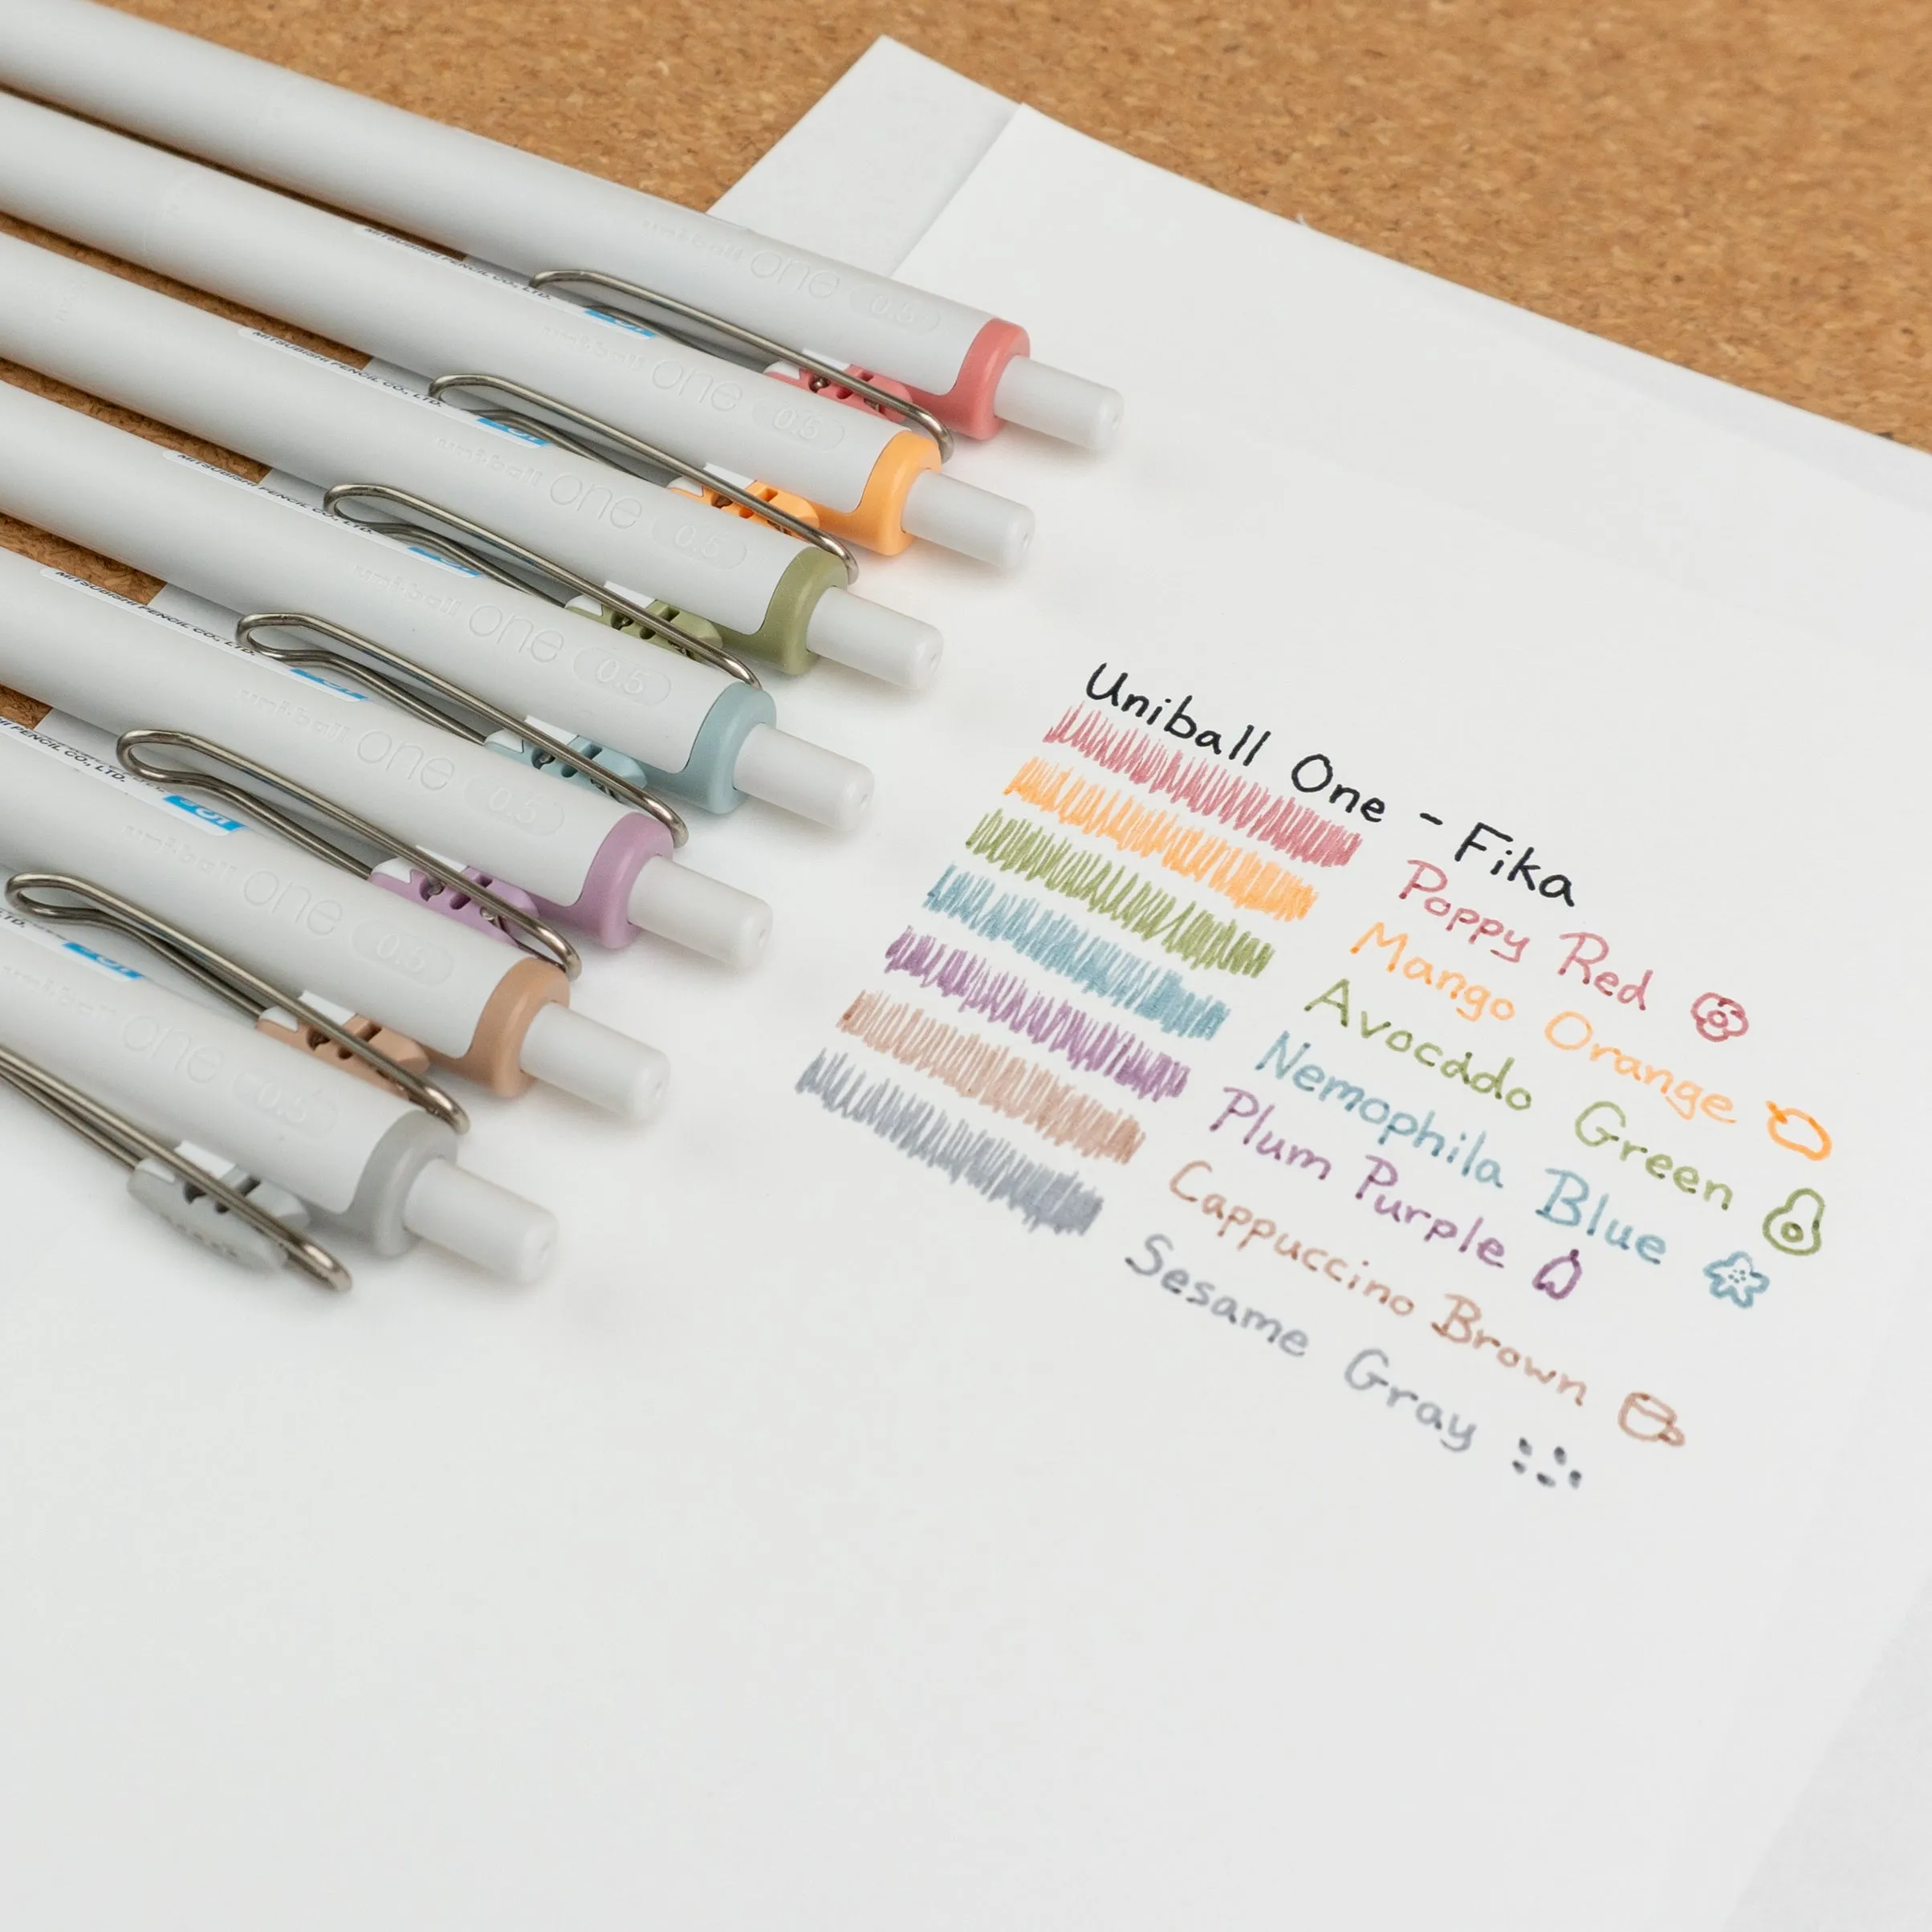 uni-ball one 0.5
MITSUBISHI PENCIL CO., LTD.
uni-ball one 0.5
MITSUBISHI PENCIL CO., LTD.
uni-ball one 0.5
MITSUBISHI PENCIL CO., LTD.
uni-ball one 0.5
MITSUBISHI PENCIL CO., LTD.
uni-ball one 0.5
PENCIL CO., LTD.
uni-ball one 0.5
LTD.
uni-ball one 0.5
Uniball One - Fika
Poppy Red
Mango Orange
Avocado Green
Nemophila Blue
Plum Purple
Cappuccino Brown
Sesame Gray